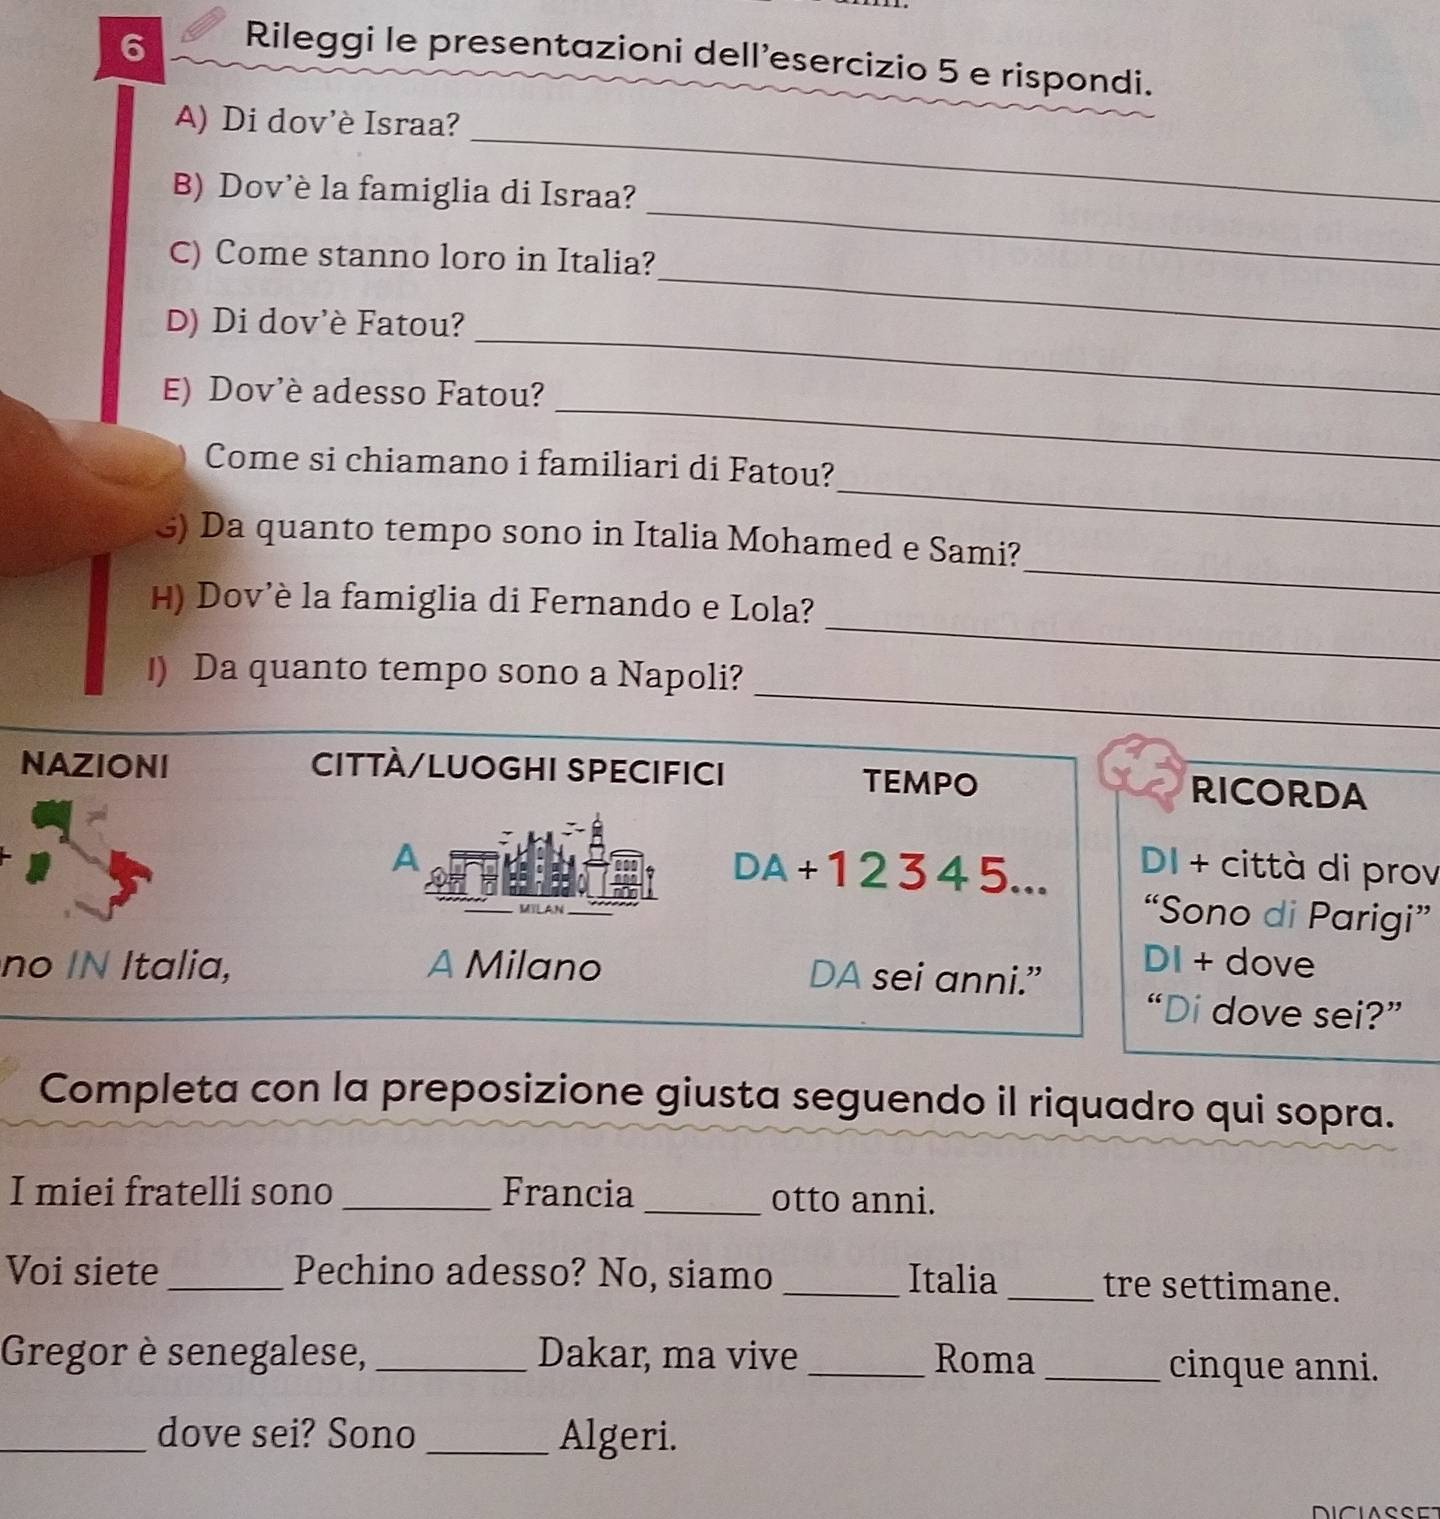 6 Rileggi le presentazioni dell'esercizio 5 e rispondi.
A) Di dov'è Israa?
B) Dov'è la famiglia di Israa?
C) Come stanno loro in Italia?
D) Di dov'è Fatou?
E) Dov'è adesso Fatou?
) Come si chiamano i familiari di Fatou?
G) Da quanto tempo sono in Italia Mohamed e Sami?
H) Dov'è la famiglia di Fernando e Lola?
I) Da quanto tempo sono a Napoli?
NAZIONI CITTÀ/LUOGHI SPECIFICI TEMPO
A MILAN DA + 1 2 3 4 5...
no IN Italia, A Milano DA sei anni."
RICORDA
DI + città di prov
"Sono di Parigi"
DI + dove
"Di dove sei?"
Completa con la preposizione giusta seguendo il riquadro qui sopra.
I miei fratelli sono ______ Francia ______ otto anni.
Voi siete ______ Pechino adesso? No, siamo ______ Italia ______ tre settimane.
Gregor è senegalese, ______ Dakar, ma vive ______ Roma ______ cinque anni.
______ dove sei? Sono ______ Algeri.